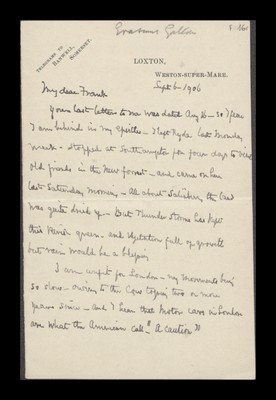 Erasmus Galton
TELEGRAMS TO
BANWELL,
SOMERSET.
LOXTON,
WESTON-SUPER-MARE.
Sept 6 - 1906
My dear Frank
Your last letter to me was dated Aug 16 - so I fear
I am behind in my Epistles - I left Ryde last Monday
week - stopped at Southampton for four days to visit
old friends in the New Forest - and came on here
last Saturday morning - All about Salisbury the land
was quite dried up - But Thunder storms has kept
this Parish green - and vegetation full of growth
but rain would be a blessing
I am unfit for London - my movements being
so slow - owing to the Cow tossing two or more
years since - and I hear that Motor cars in London
are what the American call "A caution"